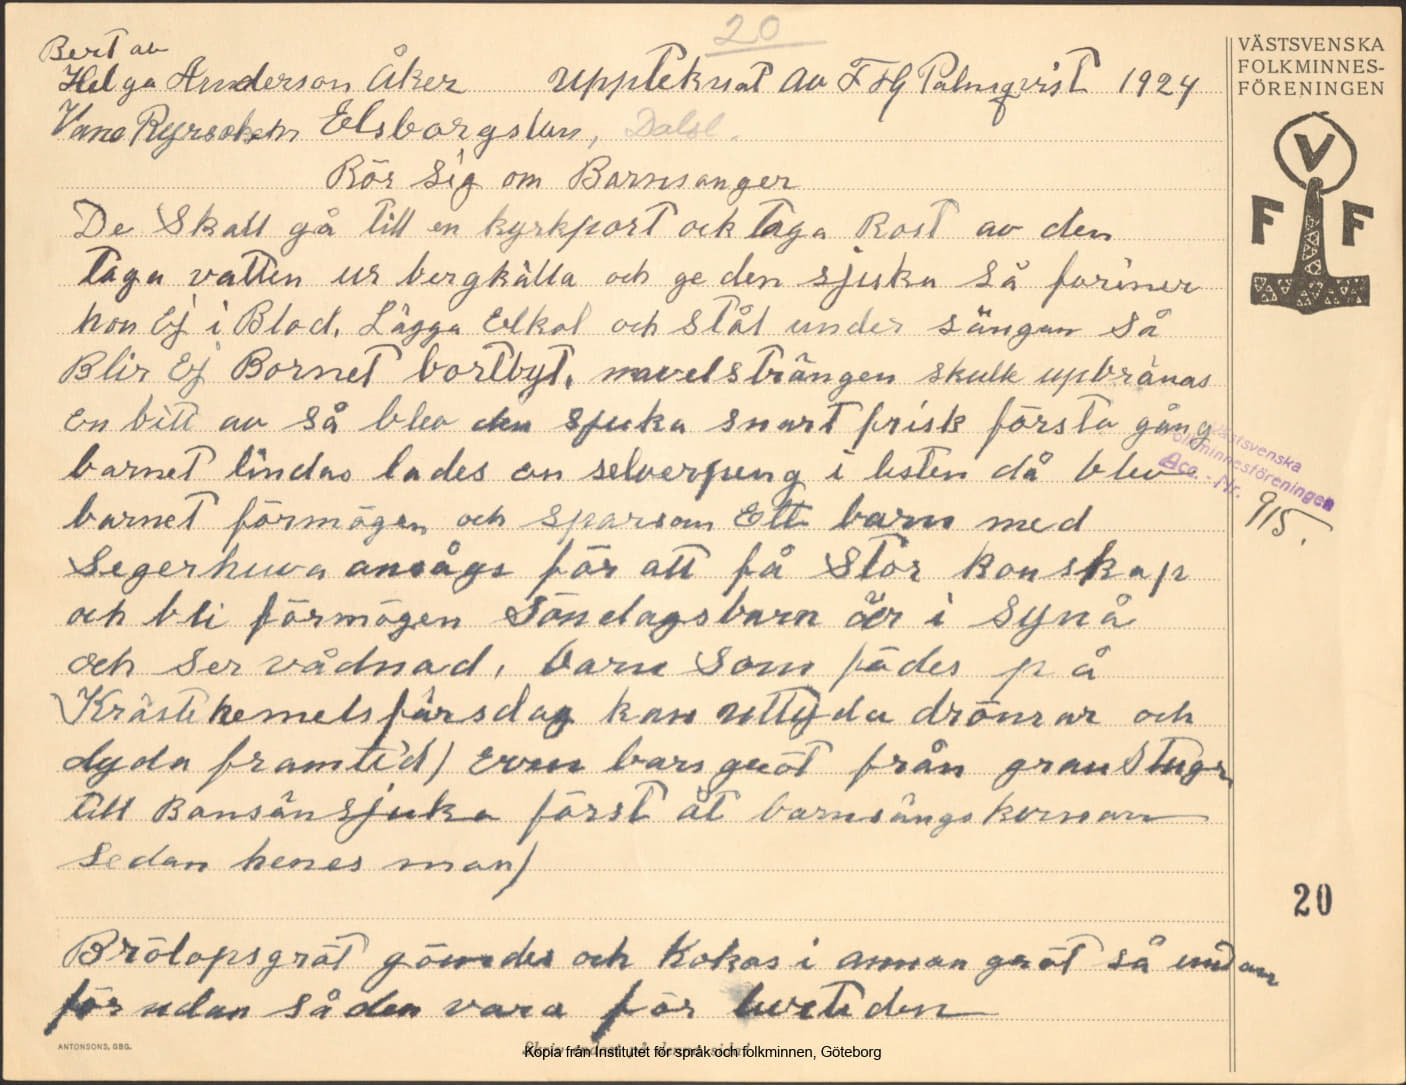 20
Bert av
Helga Anderson Åker Uppteknat av F HG Palmqvist 1924
Vane Ryrs Elsborgslan, Dalsl.
Rör Sig om Barnsanger
De Skall gå till en kyrkport ock taga Rost av den
taga vatten ur bergkälla och ge den sjuka så förinner
hon Ej i Blod. Lägga Elkol och Stål under sängan så
Blir Ej Bornet bortbyt. navelsträngen skulle upbränas
en bitt av så blev den sjuka snart frisk första gång
barnet lindas lades en selverpeng i listen då blev
barnet förmögen och sparsom Ett barn med
Segerhuva ansågs för att få Stor konskap
och bli förmögen Söndagsbarn är i Synå
och Ser vådnad, barn Som födes på
Kräste hemelsfärsdag kan uttyda drömar och
dyda framtid) Even bars gröt från granstugr
till Bansänsjuka först åt barnsängskornan
Sedan henes man)
Brölopsgröt gömdes och kokas i annan gröt så undan
för udan så den vara för livstiden
VÄSTSVENSKA
FOLKMINNES-
FÖRENINGEN
V
F F
Västsvenska
Folkminnesföreningen
Acc. - Nr.
915.
20
ANTONSONS, GBG.
Kopia från Institutet för språk och folkminnen, Göteborg